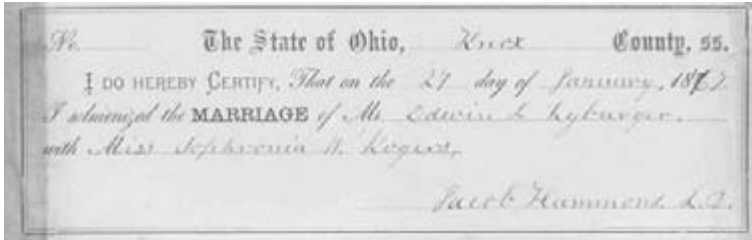 No. The State of Ohio, Knox County, ss.
I DO HEREBY CERTIFY, That on the 27 day of January, 1867
I solemnized the MARRIAGE of Mr. Edwin Lybarger,
with Miss Sophronia W. Rogers,
Jacob Hammond